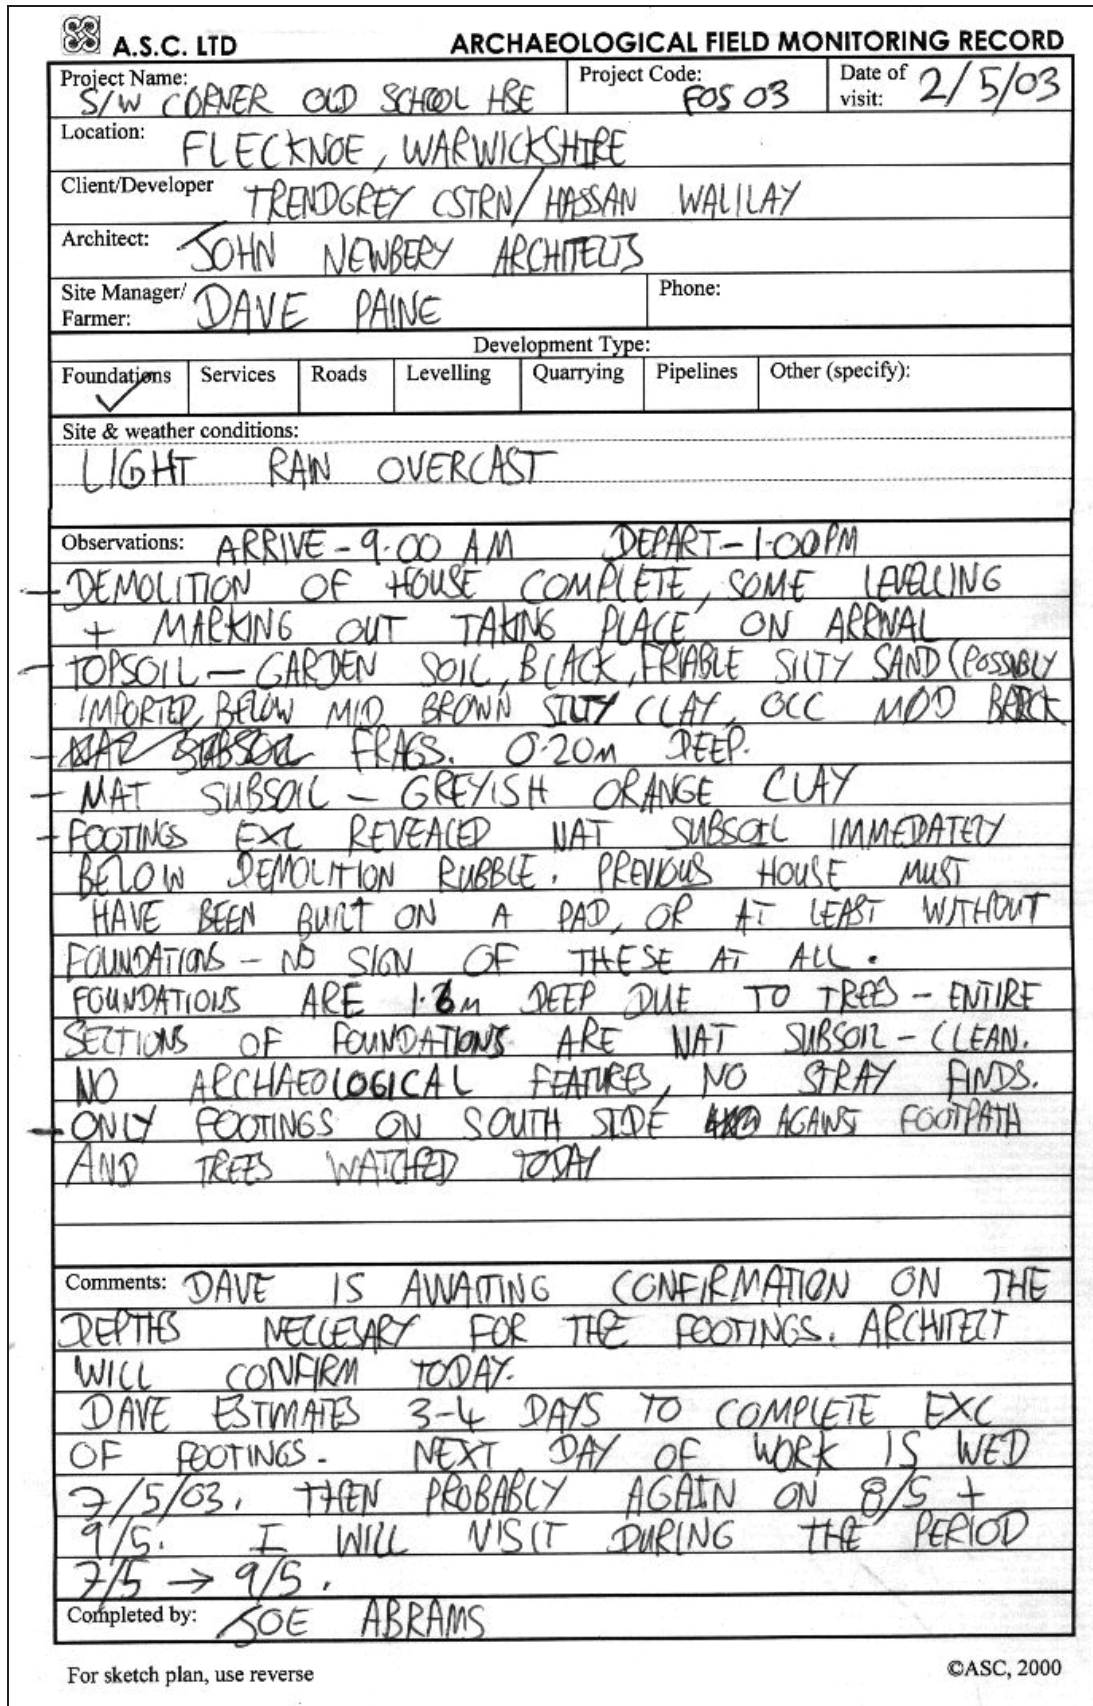 A.S.C. LTD ARCHAEOLOGICAL FIELD MONITORING RECORD
Project Name: S/W CORNER OLD SCHOOL HSE Project Code: FOS 03 Date of visit: 2/5/03
Location: FLECKNOE, WARWICKSHIRE
Client/Developer TRENDGREY CSTRN/HASSAN WALILAY
Architect: JOHN NEWBERY ARCHITECTS
Site Manager/ Farmer: DAVE PAINE Phone:
Development Type:
Foundations Services Roads Levelling Quarrying Pipelines Other (specify):
Site & weather conditions:
LIGHT RAIN OVERCAST
Observations: ARRIVE - 9.00 AM DEPART - 1.00PM
- DEMOLITION OF HOUSE COMPLETE, SOME LEVELLING
+ MARKING OUT TAKING PLACE ON ARRIVAL
- TOPSOIL - GARDEN SOIL, BLACK, FRIABLE SILTY SAND (POSSIBLY
IMPORTED, BELOW MID BROWN SILTY CLAY, OCC MOD BRICK
- FRAGS. 0.20m DEEP.
- NAT SUBSOIL - GREYISH ORANGE CLAY
- FOOTINGS EXC REVEALED NAT SUBSOIL IMMEDATELY
BELOW DEMOLITION RUBBLE. PREVIOUS HOUSE MUST
HAVE BEEN BUILT ON A PAD, OR AT LEAST WITHOUT
FOUNDATIONS - NO SIGN OF THESE AT ALL.
FOUNDATIONS ARE DEEP DUE TO TREES - ENTIRE
SECTIONS OF FOUNDATIONS ARE NAT SUBSOIL - CLEAN.
NO ARCHAEOLOGICAL FEATURES, NO STRAY FINDS.
- ONLY FOOTINGS ON SOUTH SIDE AGAINST FOOTPATH
AND TREES WATCHED TODAY
Comments: DAVE IS AWAITING CONFIRMATION ON THE
DEPTHS NECCESARY FOR THE FOOTINGS. ARCHITECT
WILL CONFIRM TODAY.
DAVE ESTIMATES 3-4 DAYS TO COMPLETE EXC
OF FOOTINGS. NEXT DAY OF WORK IS WED
7/5/03. THEN PROBABLY AGAIN ON 8/5 +
9/5. I WILL VISIT DURING THE PERIOD
7/5 → 9/5.
Completed by: JOE ABRAMS
For sketch plan, use reverse ©ASC, 2000